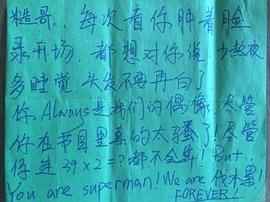 糙哥。每次看你肿着脸
录开场，都想对你说：少熬夜
多睡觉，头发不要再白了
你Always是我们的偶像，尽管
你在节目里真的太骚了！尽管
你连39×2=?都不会算！But,
You are superman! We are 伐木累!
FOREVER!